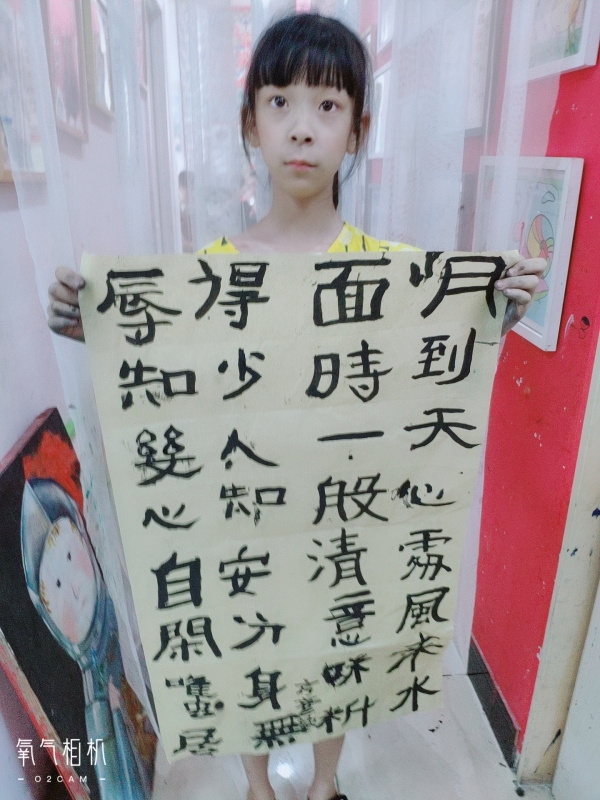 月到天心處風来水
面時一般清意味料
得少人知安分身無
辱知幾心自閑雖居
氧气相机
- O2CAM -